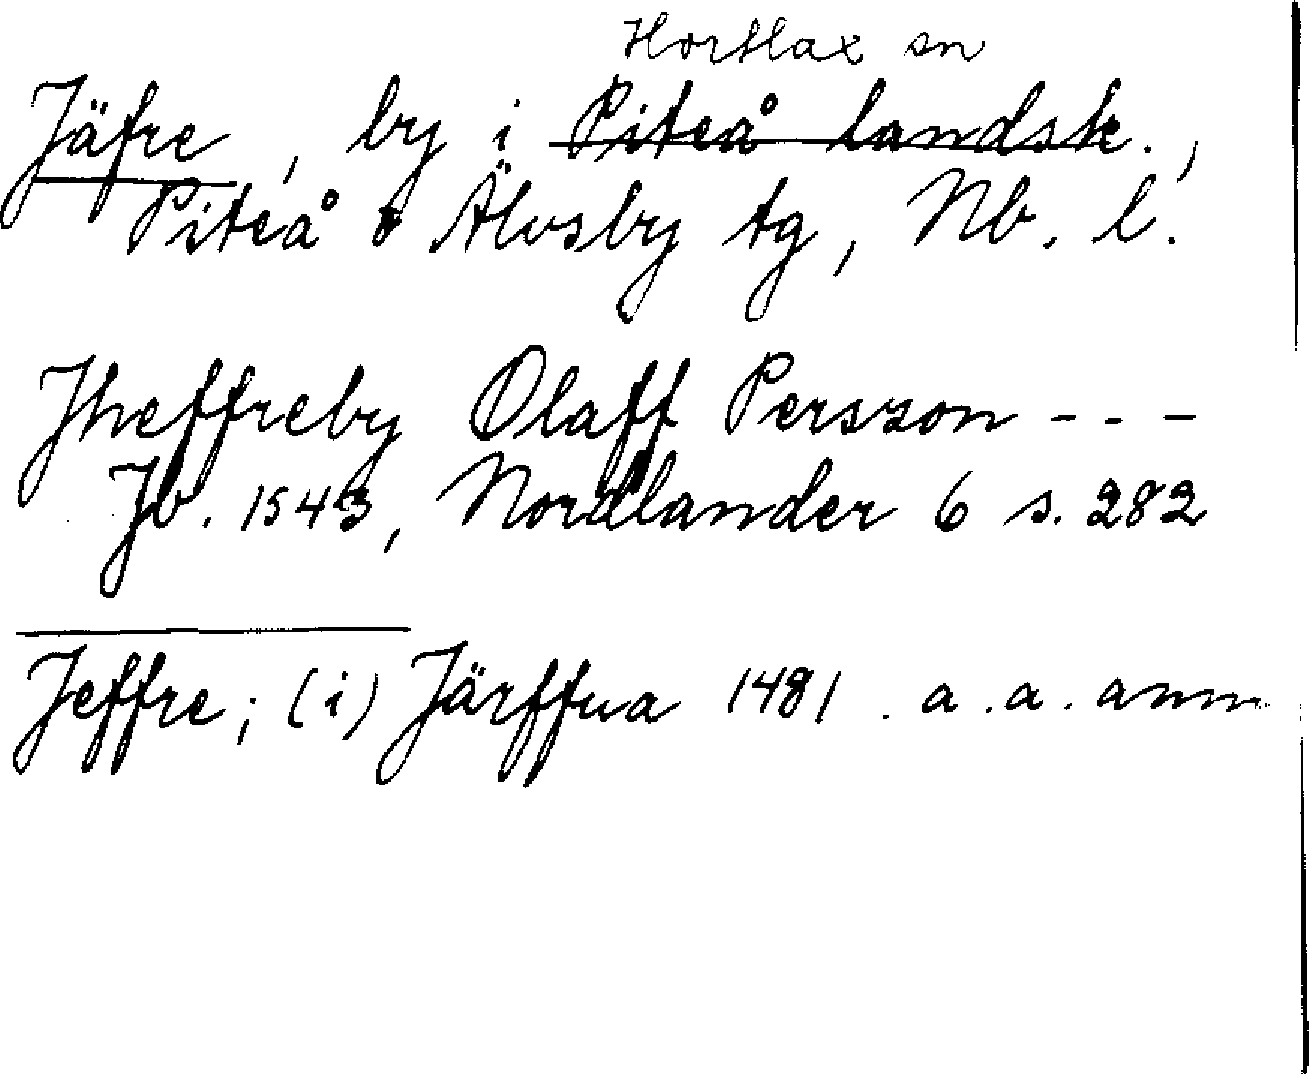 Hortlax sn
Jäfre, by i Piteå landsk.,
Piteå o Älvsby tg, Nb. l.
Jheffreby Olaff Persson - - -
Jb. 1543, Nordlander 6 s. 282
Jeffre; (i) Järffua 1481. a.a. anm.